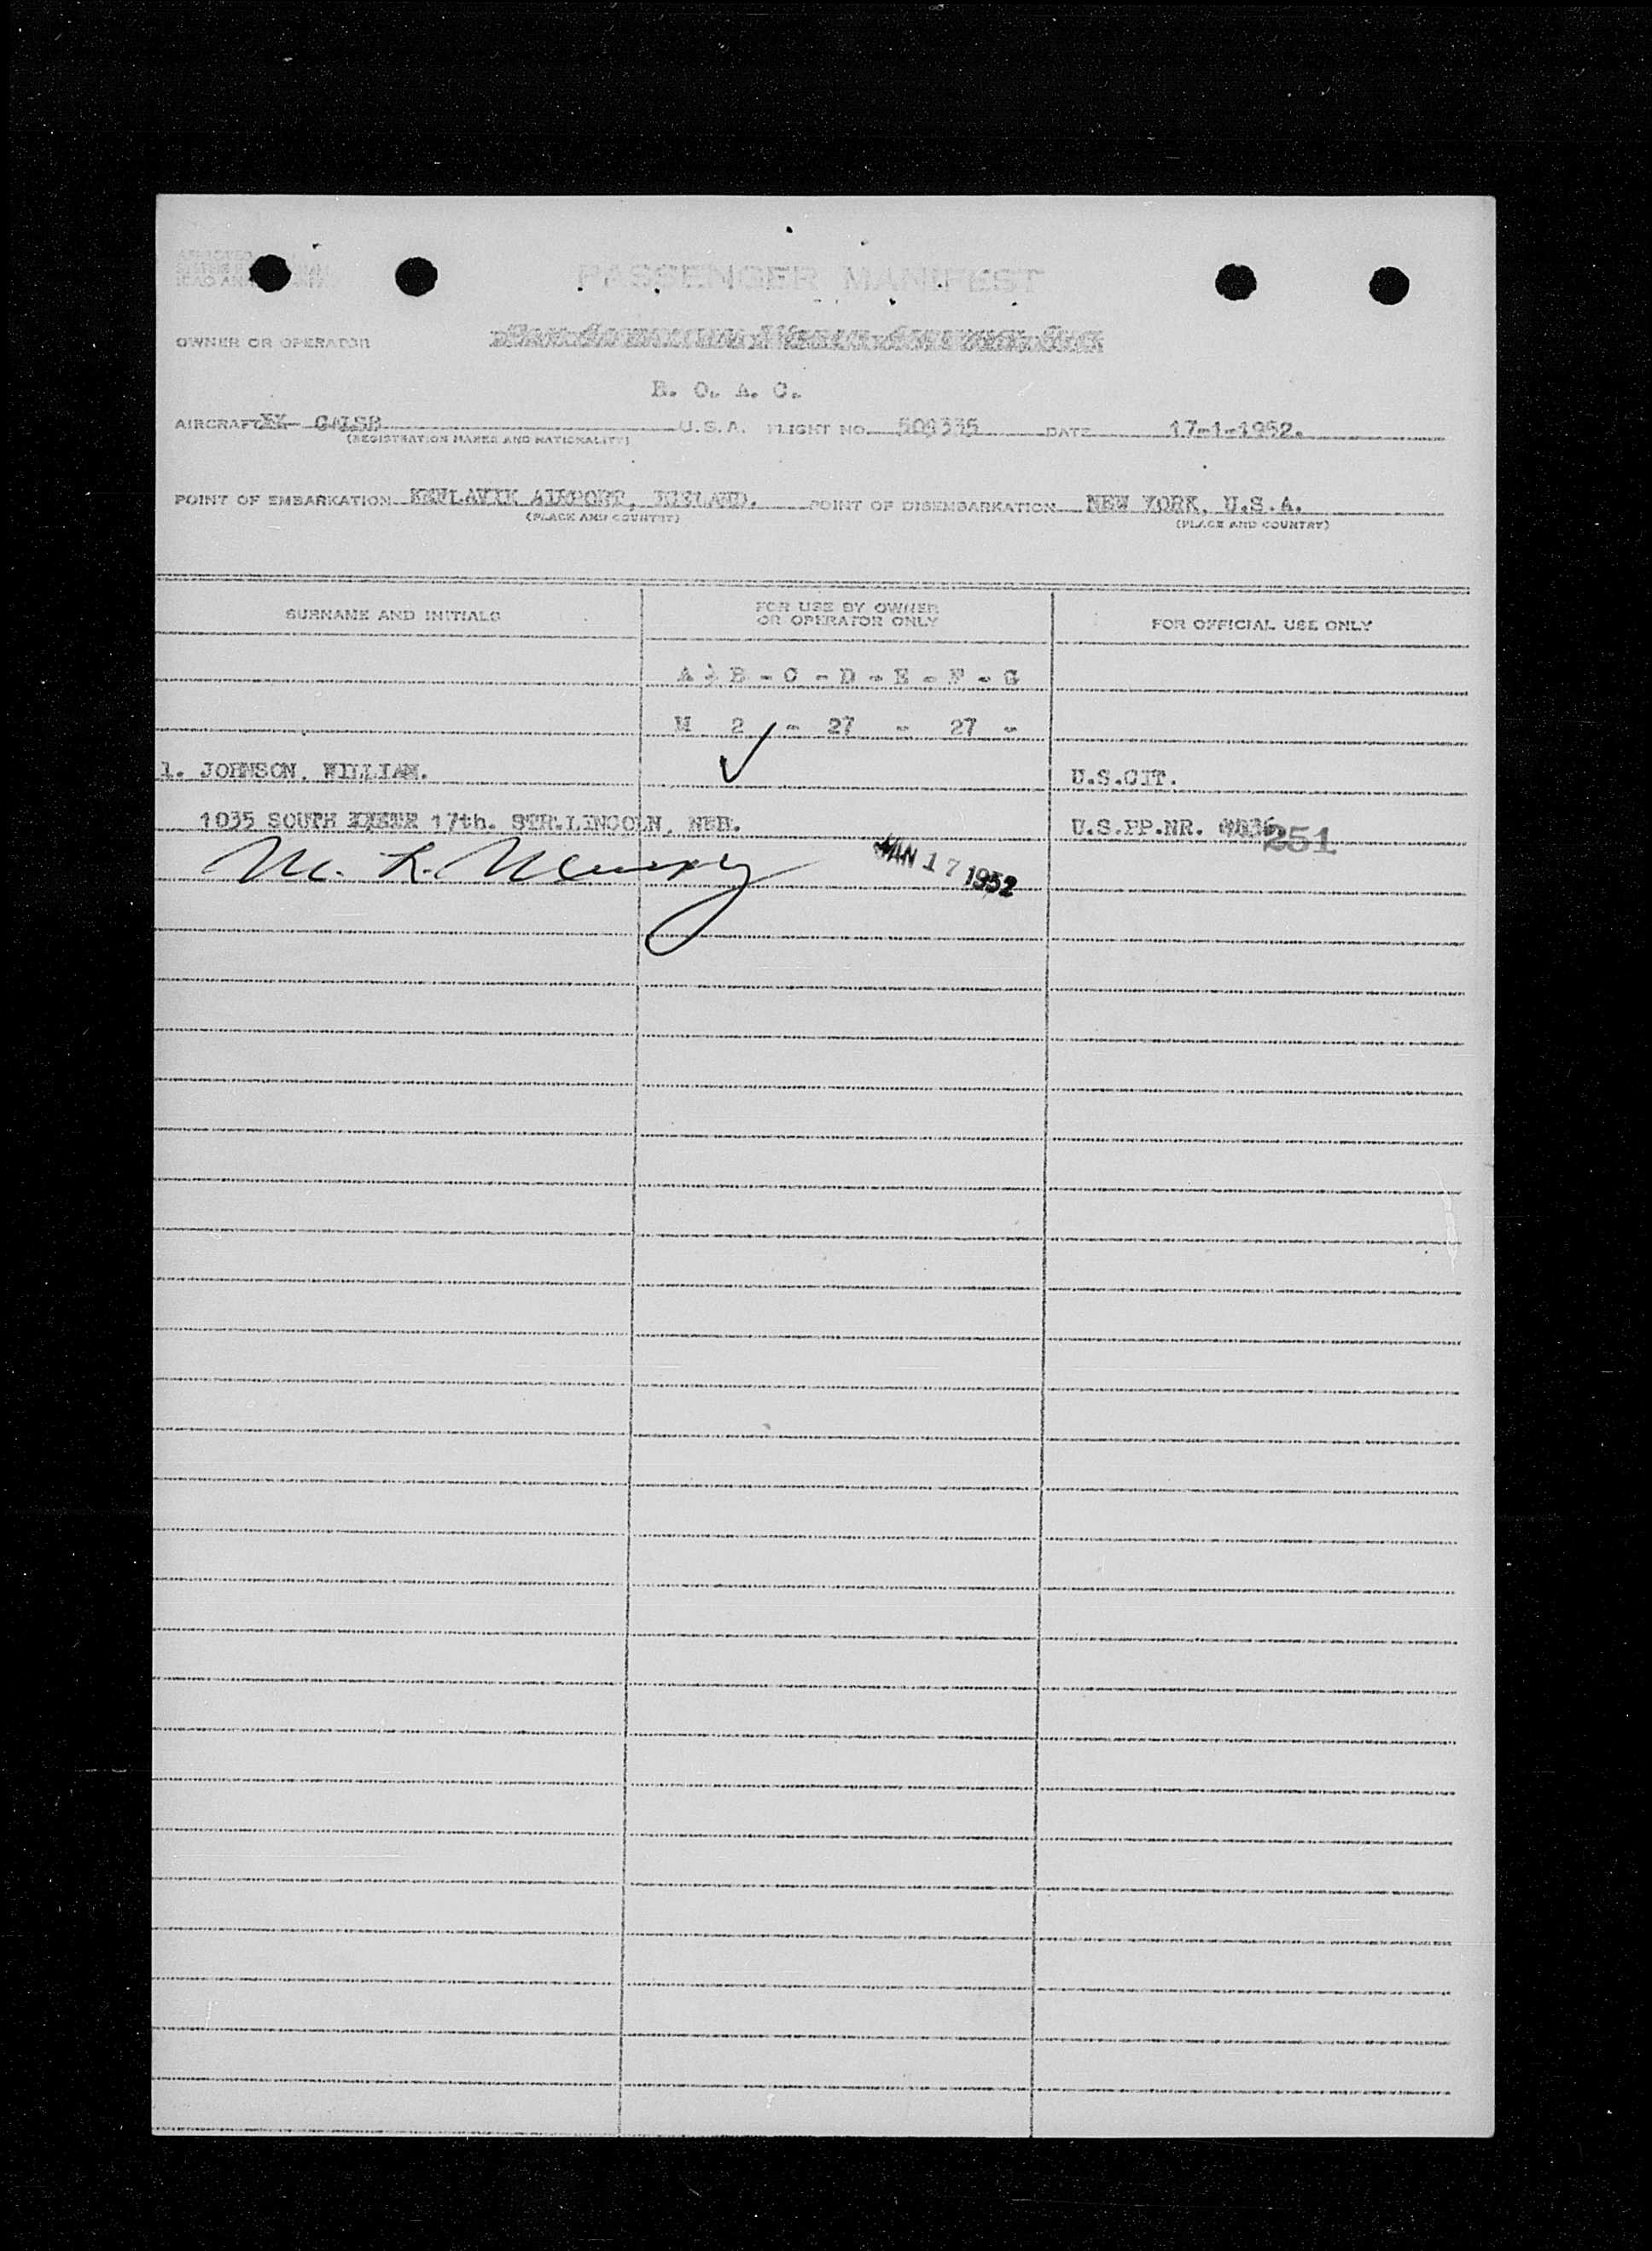 PASSENGER MANIFEST
OWNER OR OPERATOR
B. O. A. C.
AIRCRAFT GALSB U.S.A. FLIGHT NO. DATE 17-1-1952.
(REGISTRATION MARKS AND NATIONALITY)
POINT OF EMBARKATION KEFLAVIK AIRPORT, ICELAND. POINT OF DISEMBARKATION NEW YORK, U.S.A.
(PLACE AND COUNTRY) (PLACE AND COUNTRY)
SURNAME AND INITIALS FOR USE BY OWNER OR OPERATOR ONLY FOR OFFICIAL USE ONLY
A - B - C - D - E - F - G
M 2 - 27 - 27 -
1. JOHNSON, WILLIAM. U.S.CIT.
1035 SOUTH 17th. STR.LINCOLN, NEB. U.S.PP.NR. 251
M. R.
JAN 17 1952